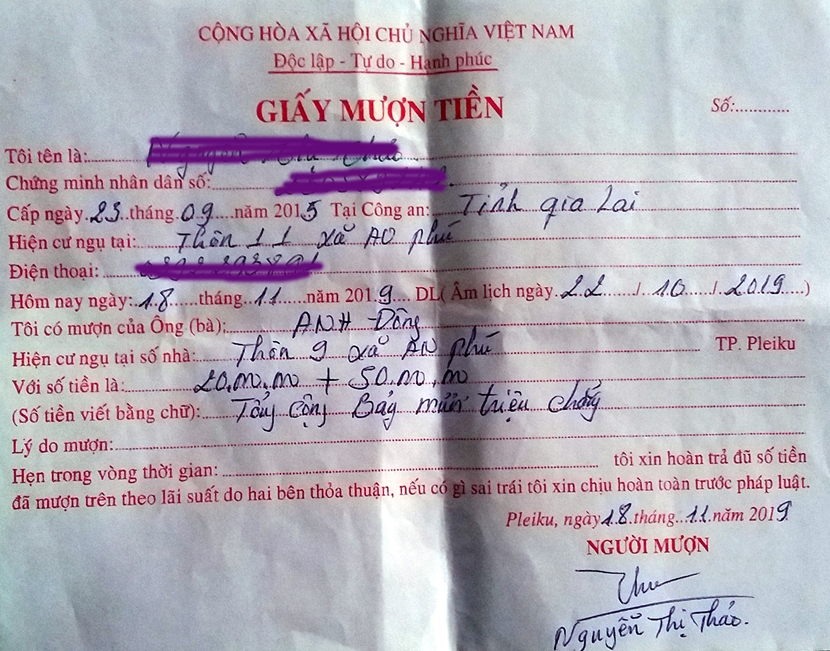 CỘNG HÒA XÃ HỘI CHỦ NGHĨA VIỆT NAM
Độc lập - Tự do - Hạnh phúc
GIẤY MƯỢN TIỀN
Số:............
Tôi tên là:
Chứng minh nhân dân số:
Cấp ngày 23 tháng 09 năm 2015 Tại Công an: Tỉnh gia Lai
Hiện cư ngụ tại: Thôn 11 xã AN phú
Điện thoại:
Hôm nay ngày: 18 tháng 11 năm 2019 DL( Âm lịch ngày 22 / 10 / 2019 )
Tôi có mượn của Ông (bà): ANH Dông
Hiện cư ngụ tại số nhà: Thôn 9 xã AN phú TP. Pleiku
Với số tiền là: 20.000.000 + 50.000.000
(Số tiền viết bằng chữ): Tổng cộng Bảy mươi triệu chẵn
Lý do mượn:
Hẹn trong vòng thời gian: tôi xin hoàn trả đũ số tiền
đã mượn trên theo lãi suất do hai bên thỏa thuận, nếu có gì sai trái tôi xin chịu hoàn toàn trước pháp luật.
Pleiku, ngày 18 tháng 11 năm 2019
NGƯỜI MƯỢN
Nguyễn Thị Thảo.